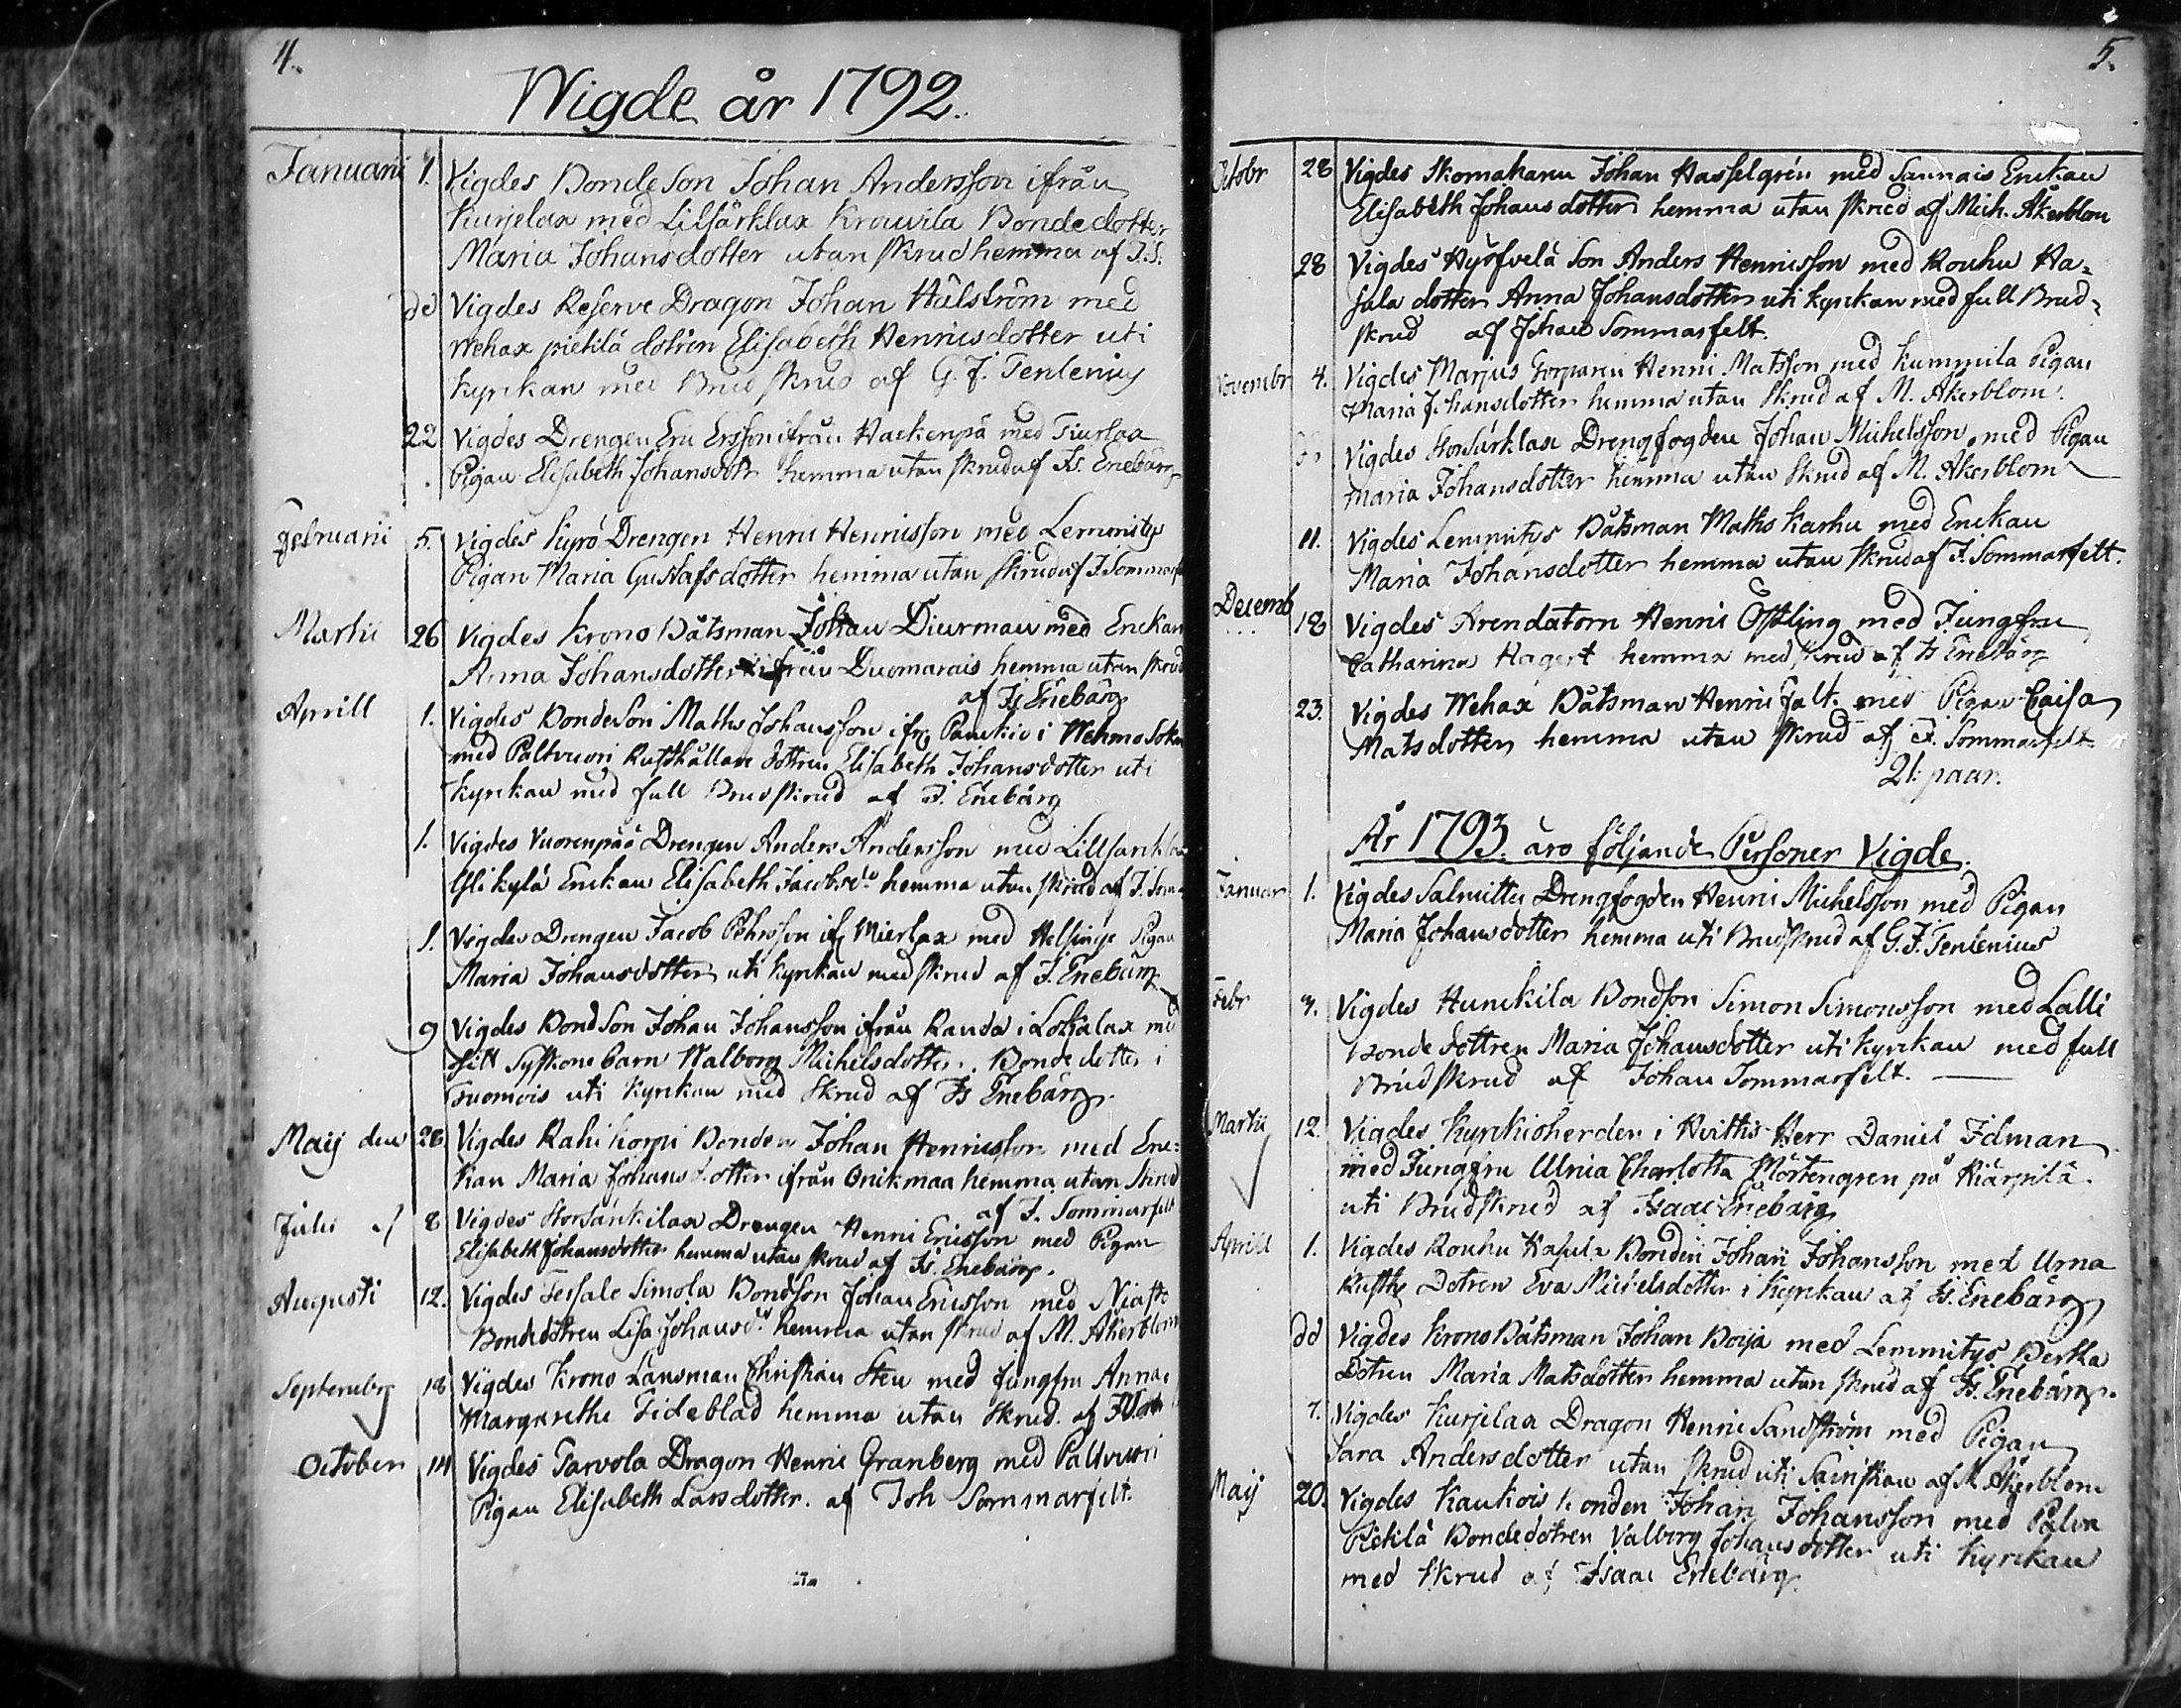 4.
Wigde år 1792.
Januarii 1. Vigdes BondeSon Johan Andersson ifrån
Kurjelax med Lilsärklax Krouvila Bondedotter
Maria Johansdotter utan skrud hemma af J.S.
dd Vigdes Reserve Dragon Johan Hälström med
Wehax pietilä dotren Elisabeth Henricsdotter uti
Kyrckan med Brud skrud af G. J. Tenlenius
22 Vigdes Drengen Eric Ersson ifrån Hackenpä med Tiurlax
Pigan Elisabeth Johansdotr hemma utan skrud af Is. Enebärg
Februarii 5. Vigdes Kyrö Drengen Henric Henricsson med Lemmitys
Pigan Maria Gustafsdotter hemma utan skrud af J. Sommarf
Martii 26 Vigdes Krono Båtsman Johan Diurman med Enckan
Anna Johansdotter ifrån Duomarais hemma utan skrud
af Is Enebärg
Aprill 1. Vigdes BondeSon Maths Johansson ifr. Panckio i Wehmo Sokn
med Paltvuori Rusthållare dottren Elisabeth Johansdotter uti
Kyrckan med full Brudskrud af I. Enebärg
1. Vigdes Vuorenpää Drengen Anders Andersson med Lillsarkl
Ylikylä Enckan Elisabeth Jacobsdo hemma utan skrud af J. Som
1. Vigdes Drengen Jacob Pehrsson if Mierlax med Helsinge Pigan
Maria Johansdotter uti kyrckan med skrud af I. Enebärg
9 Vigdes BondSon Johan Johansson ifrån Randa i Lokalax med
sitt Syskone barn Walborg Michelsdotter. Bonde dotter i
Tuomois uti Kyrckan med Skrud af Is Enebärg.
Maij den 28. Vigdes Rahikorpi Bonden Johan Henricsson med Enc-
kan Maria Johansdotter ifrån Onikmaa hemma utan Skrud
af J. Sommarfelt
Julii 8 Vigdes Storsärckilax Drengen Henric Ericsson med Pigan
Elisabeth Johansdotter hemma utan skrud af Is. Enebärg.
Augusti 12. Vigdes Tersale Simola Bondson Johan Ericsson med Niaste
Bondedotren Lisa Johansdr hemma utan skrud af M. Åkerblom
Septembrs 18 Vigdes Krono Länsman Christian Sten med Jungfru Anna
Margaretha Tideblad hemma utan Skrud. af
October 14 Vigdes Tarvola Dragon Henric Granberg med Paltvuori
Pigan Elisabeth Larsdotter. af Joh Sommarfelt.
5.
Octobr 28 Vigdes Skomakaren Johan Hasselgrén med Sannais Enckan
Elisabeth Johans dotter hemma utan skrud af Mich. Åkerblom
28 Vigdes Hyöfvelä Son Anders Henricsson med Rouhu Ha-
sala dotter Anna Johansdotter uti kyrckan med full Brud-
skrud af Johan Sommarfelt.
Novembr 4. Vigdes Marjus Torparen Henric Matsson med Kummila Pigan
Maria Johansdotter hemma utan Skrud af M. Åkerblom.
Vigdes Storsärklax Drengfogden Johan Michelsson, med Pigan
Maria Johansdotter hemma utan Skrud af M. Åkerblom
11. Vigdes Lemmitys Båtsman Maths Karhu med Enckan
Maria Johansdotter hemma utan skrud af J. Sommarfelt.
Decemb 18 Vigdes Arendatorn Henric Östling med Jungfru
Catharina Hagert hemma med skrud af Is Enebärg
23. Vigdes Wehax Båtsman Henric Falt. med Pigan Caisa
Matsdotter hemma utan skrud af J. Sommarfelt.
21. paar.
År 1793. äro följande Personer Vigde.
Januar 1. Vigdes Salmitty Drengfogden Henric Michelsson med Pigan
Maria Johansdotter hemma uti Brudskrud af G. J. Tenlenius
Febr 3. Vigdes Hunckila Bondson Simon Simonsson med Lalli
Bonde dottren Maria Johansdotter uti Kyrckan med full
Brudskrud af Johan Sommarfelt.
Martii 12. Vigdes Kyrckioherden i Hvittis Herr Daniel Idman
med Jungfru Ulrica Charlotta Mörtengren på Kiärpilä
uti Brudskrud af Isaac Enebärg
Aprill 1. Vigdes Rouhu Hasula Bonden Johan Johansson med Urna
Rusth Dotren Eva Michelsdotter i Kyrckan af Is. Enebärg
dd Vigdes Krono Båtsman Johan Boija med Lemmitys Pertka
Dotren Maria Matsdotter hemma utan skrud af Is. Enebärg.
7. Vigdes Kurjelax Dragon Henric Sandström med Pigan
Sara Andersdotter utan skrud uti af M. Åkerblom
Maij 20. Vigdes Kaukois Bonden Johan Johansson med Palva
Pietilä Bondedotren Valborg Johansdotter uti Kyrckan
med skrud af Isaac Enebärg.